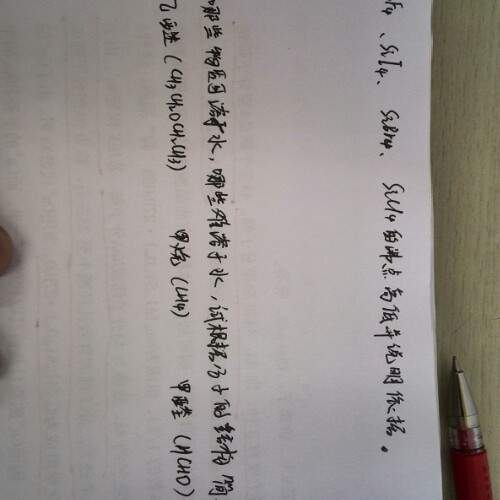 F4、SiI4、SiBr4、SiCl4的沸点高低并说明依据。
哪些物质溶于水，哪些难溶于水，试根据分子的结构简
乙醚(CH3CH2OCH2CH3) 甲烷(CH4) 甲醛(HCHO)